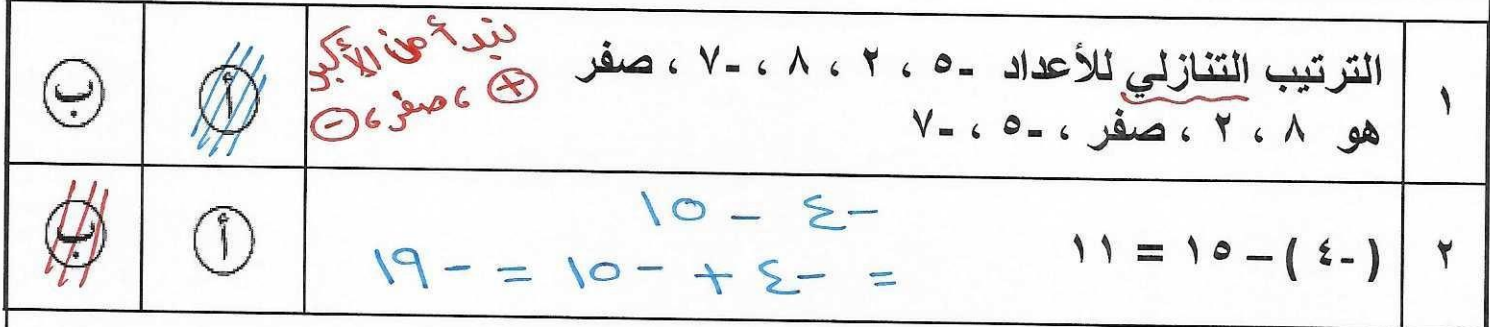 ١
الترتيب التنازلي للأعداد -٥ ، ٢ ، ٨ ، -٧ ، صفر
هو ٨ ، ٢ ، صفر ، -٥ ، -٧
نبدأ من الأكبر
+ ، صفر ، -
أ
ب
٢
(-٤) - ١٥ = ١١
-٤ - ١٥
= -٤ + -١٥ = -١٩
أ
ب